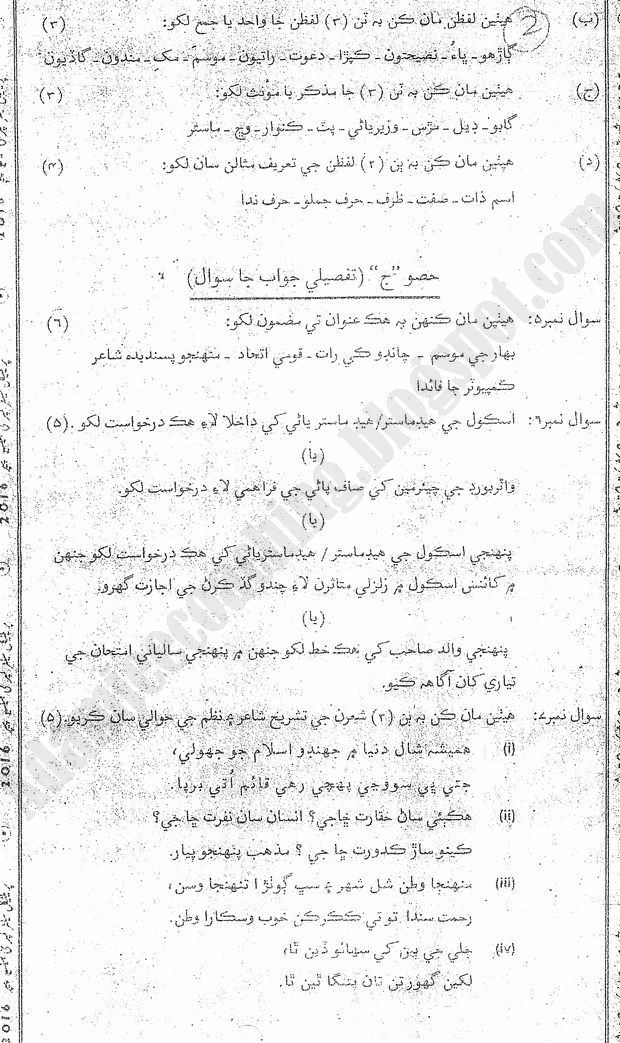 (ب) هيٺين لفظن مان ڪن به ٽن (۳) لفظن جا واحد يا جمع لکو: (۳)
2
ڳاڙهو - ڀاءُ - نصيحتون - ڪپڙا - دعوت - راتيون - موسم - مک - مندون - گاڏيون
(ج) هيٺين مان ڪن به ٽن (۳) جا مذڪر يا مؤنث لکو: (۳)
گابو - ڊيل - نڙس - وزيرياڻي - پٽ - ڪنوار - وڇ - ماسٽر
(د) هيٺين مان ڪن به ٻن (۲) لفظن جي تعريف مثالن سان لکو: (۴)
اسم ذات - صفت - ظرف - حرف جملو - حرف ندا
حصو "ج" (تفصيلي جواب جا سوال)
سوال نمبر۵: هيٺين مان ڪنهن به هڪ عنوان تي مضمون لکو: (۶)
بهار جي موسم - چانڊوڪي رات - قومي اتحاد - منهنجو پسنديده شاعر
ڪمپيوٽر جا فائدا
سوال نمبر۶: اسڪول جي هيڊماستر/ هيڊ ماستر ياڻي کي داخلا لاءِ هڪ درخواست لکو. (۵)
(يا)
واٽر بورڊ جي چيئرمين کي صاف پاڻي جي فراهمي لاءِ درخواست لکو.
(يا)
پنهنجي اسڪول جي هيڊماستر / هيڊماسترياڻي کي هڪ درخواست لکو جنهن
۾ کائنس اسڪول ۾ زلزلي متاثرن لاءِ چندو گڏ ڪرڻ جي اجازت گهرو.
(يا)
پنهنجي والد صاحب کي هڪ خط لکو جنهن ۾ پنهنجي سالياني امتحان جي
تياري کان آگاهه ڪيو.
سوال نمبر۷: هيٺين مان ڪن به ٻن (۲) شعرن جي تشريح شاعر ۽ نظم جي حوالي سان ڪريو. (۵)
(i) هميشہ شال دنيا ۾ جهنڊو اسلام جو جهولي،
جتي ڀي سووجي پهچي رهي قائم اُتي برپا.
(ii) هڪٻئي سان حقارت ڇاجي؟ انسان سان نفرت ڇا جي؟
ڪينو ساڙ ڪدورت ڇا جي؟ مذهب پنهنجو پيار.
(iii) منهنجا وطن شل شهر ۽ سڀ ڳوٺڙا تنهنجا وسن،
رحمت سندا تو تي ڪڪرڪن خوب وسڪارا وطن.
(iv) جلي جي ٻين کي سهائو ڏين ٿا،
لکين گهورتن تان پتنگا ٿين ٿا.
adamjeecoaching.blogspot.com
2016
2016
2016
2016